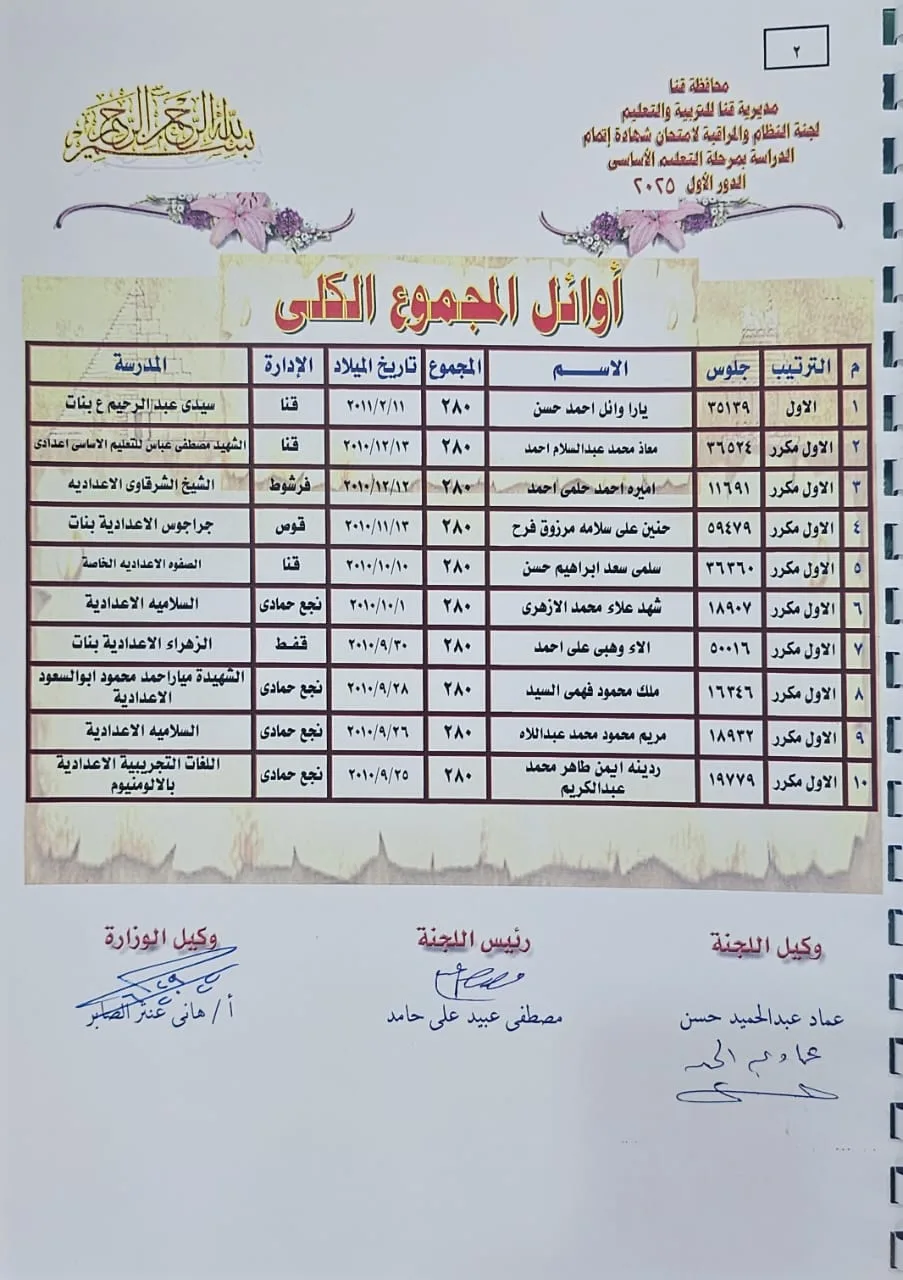 ٢
محافظة قنا
مديرية قنا للتربية والتعليم
لجنة النظام والمراقبة لامتحان شهادة إتمام
الدراسة بمرحلة التعليم الأساسى
الدور الأول ٢٠٢٥
بسم الله الرحمن الرحيم
أوائل المجموع الكلى
م الترتيب جلوس الاســم المجموع تاريخ الميلاد الإدارة المدرسة
١ الاول ٣٥١٣٩ يارا وائل احمد حسن ٢٨٠ ٢٠١١/٢/١١ قنا سيدى عبد الرحيم ع بنات
٢ الاول مكرر ٣٦٥٣٤ معاذ محمد عبدالسلام احمد ٢٨٠ ٢٠١٠/١٢/١٣ قنا الشهيد مصطفى عباس للتعليم الاساسى اعدادى
٣ الاول مكرر ١١٦٩١ اميره احمد حلمى احمد ٢٨٠ ٢٠١٠/١٢/١٢ فرشوط الشيخ الشرقاوى الاعداديه
٤ الاول مكرر ٥٩٤٧٩ حنين على سلامه مرزوق فرح ٢٨٠ ٢٠١٠/١١/١٣ قوص جراجوس الاعدادية بنات
٥ الاول مكرر ٣٦٣٦٠ سلمى سعد ابراهيم حسن ٢٨٠ ٢٠١٠/١٠/١٠ قنا الصفوه الاعداديه الخاصة
٦ الاول مكرر ١٨٩٠٧ شهد علاء محمد الازهرى ٢٨٠ ٢٠١٠/١٠/١ نجع حمادى السلاميه الاعدادية
٧ الاول مكرر ٥٠٠١٦ الاء وهبى على احمد ٢٨٠ ٢٠١٠/٩/٣٠ قفط الزهراء الاعدادية بنات
٨ الاول مكرر ١٦٣٤٦ ملك محمود فهمى السيد ٢٨٠ ٢٠١٠/٩/٢٨ نجع حمادى الشهيدة ميار احمد محمود ابوالسعود
الاعدادية
٩ الاول مكرر ١٨٩٣٢ مريم محمود محمد عبداللاه ٢٨٠ ٢٠١٠/٩/٢٦ نجع حمادى السلاميه الاعدادية
١٠ الاول مكرر ١٩٧٧٩ ردينه ايمن طاهر محمد ٢٨٠ ٢٠١٠/٩/٢٥ نجع حمادى اللغات التجريبية الاعدادية
عبدالكريم بالالومنيوم
وكيل اللجنة رئيس اللجنة وكيل الوزارة
عماد عبدالحميد حسن مصطفى عبيد على حامد أ/ هانى عنتر الصابر